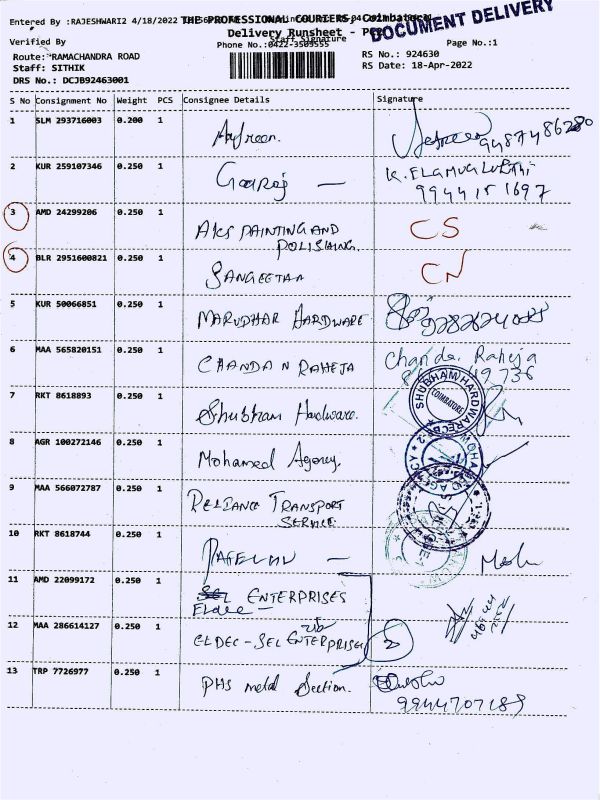 Entered By :RAJESHWARI2 4/18/2022
THE PROFESSIONAL COURIERS, Coimbatore
DOCUMENT DELIVERY
Verified By
Staff Signature
Delivery Runsheet -
Phone No.:0422-3509555
Page No.:1
Route: RAMACHANDRA ROAD
RS No.: 924630
Staff: SITHIK
RS Date: 18-Apr-2022
DRS No.: DCJB92463001
S No Consignment No Weight PCS Consignee Details Signature
1 SLM 293716003 0.200 1 Aafreen. 9487486280
2 KUR 259107346 0.250 1 —
9944151697
3 AMD 24299206 0.250 1 AKS PAINTING AND CS
POLISHING.
4 BLR 2951600821 0.250 1 SANGEETAA CN
5 KUR 50066851 0.250 1 MARUDHAR HARDWARE
6 MAA 565820151 0.250 1 CHANDAN RAHEJA Chandan Raheja
7 RKT 8618893 0.250 1 Shubham Hardware. SHUBHAM HARDWARE COIMBATORE
8 AGR 100272146 0.250 1 Mohamed Agency.
9 MAA 566072787 0.250 1 RELIANCE TRANSPORT
SERVICE.
10 RKT 8618744 0.250 1 —
11 AMD 22099172 0.250 1 SEL ENTERPRISES
Eldec —
12 MAA 286614127 0.250 1 ELDEC - SEL ENTERPRISES 2
13 TRP 7726977 0.250 1 PHS metal Section.
9944707189